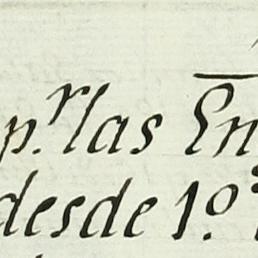 p.r las En
desde 1.o